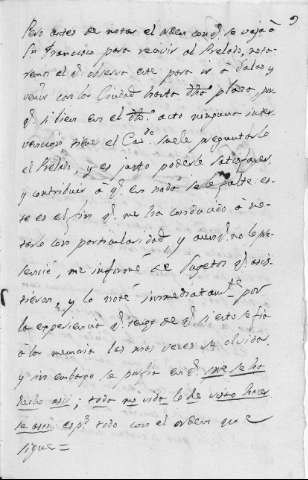 9
Pero antes de notar el orden con q̃ se vaja à
Sn Francisco para recivir al Prelado, nota-
remos el q̃ observa este para ir à Palacio y
venir con la Ciudad hasta dho plaza, pu
q̃ si bien en el dho acto ninguna inter-
vencion tiene el Cavdo suele preguntarlo
el Prelado, y es justo poderle satisfacer,
y contribuir à q̃ en nada se le falte es-
te es el fin q̃ me ha conducido à no-
tarlo con particularidad, y aunq̃ no le pre-
sencié, me informé de Sugetos q̃ asis-
tieron, y lo noté immediatamte por
la experiencia q̃ tengo de q̃ si esto se fia
à la memoria las mas veces se olvida,
y sin embargo se puslia en q̃ sme se ha
hecho assi; toda mi vida lo he visto hacer
assi espa todo con el orden que
sigue=